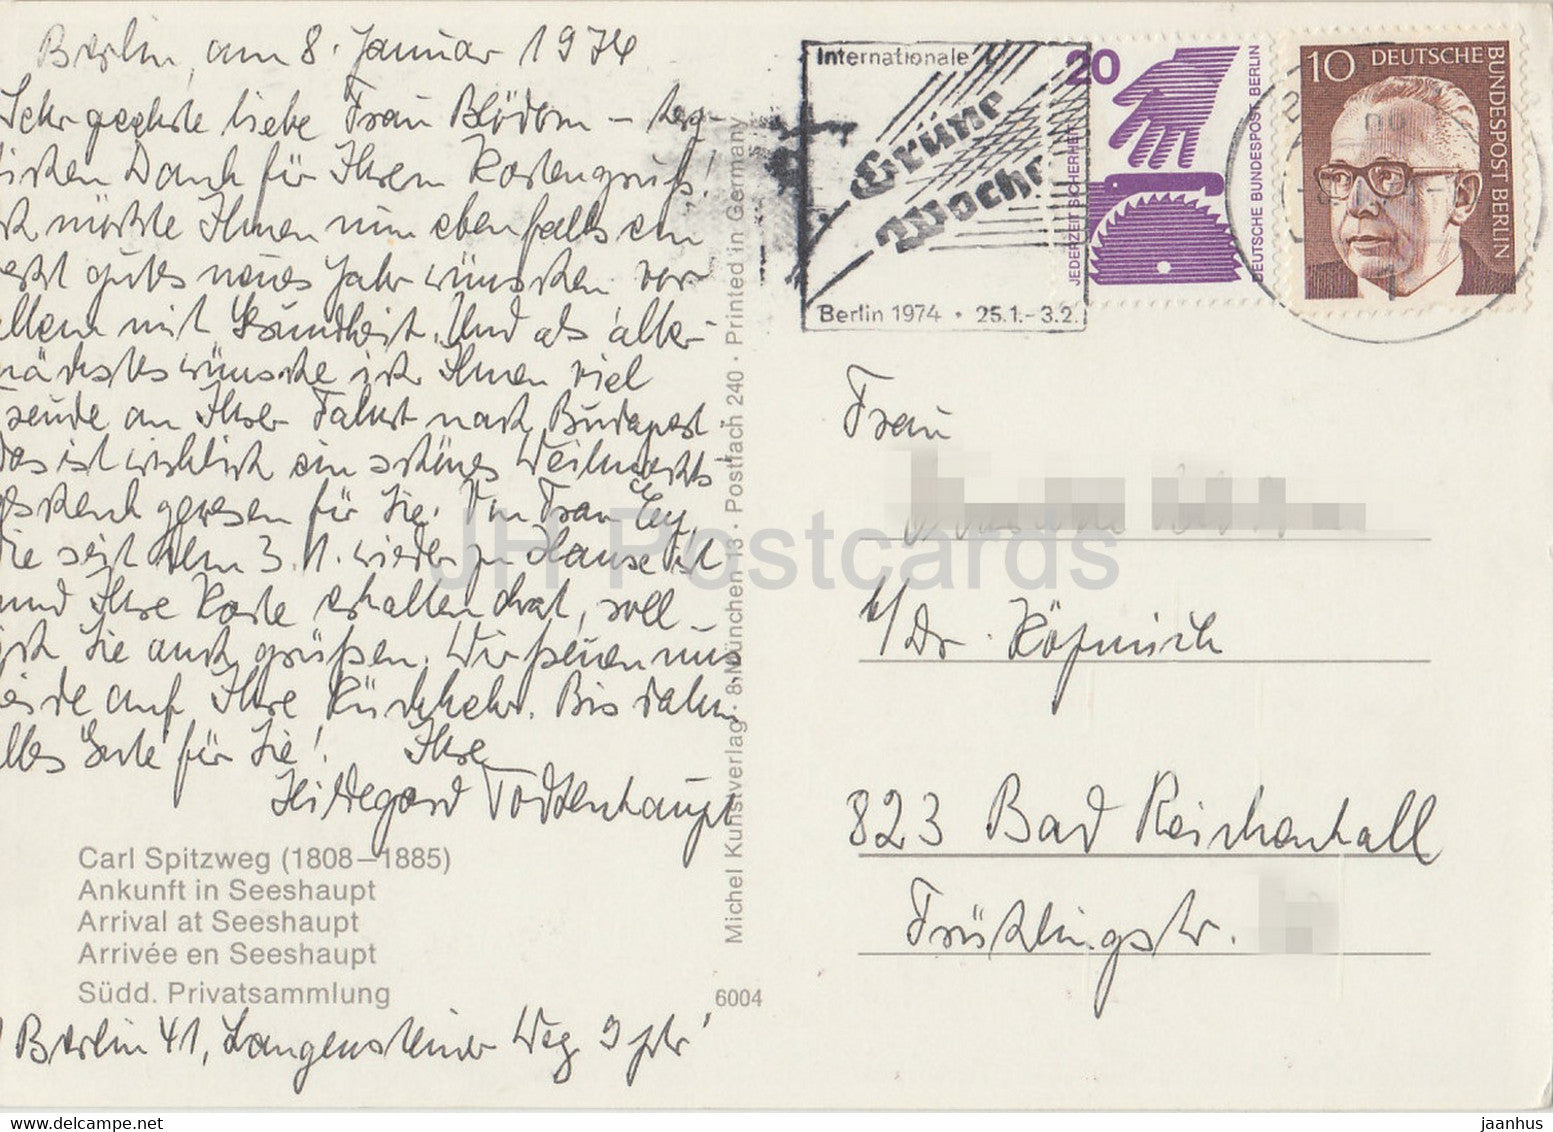 Berlin, am 8. Januar 1974
Sehr geehrte liebe Frau Blödorn – herz-
lichen Dank für Ihren Kartengruß!
Ich möchte Ihnen nun ebenfalls ein
recht gutes neues Jahr wünschen vor
allem mit Gesundheit. Und als aller-
nächstes wünsche ich Ihnen viel
Freude an Ihrer Fahrt nach Budapest
Das ist wirklich ein schönes Weihnachts-
geschenk gewesen für Sie. Von Frau
die seit dem 3.1. wieder zu Hause ist
und Ihre Karte erhalten hat, soll
ich Sie auch grüßen. Wir freuen uns
beide auf Ihre Rückkehr. Bis dahin
alles Gute für Sie! Ihre
Hildegard Todtenhaupt
Carl Spitzweg (1808–1885)
Ankunft in Seeshaupt
Arrival at Seeshaupt
Arrivée en Seeshaupt
Südd. Privatsammlung
1 Berlin 41, Langensteiner Weg 9 ptr
Michel Kunstverlag · 8 München 13 · Postfach 240 · Printed in Germany
6004
Internationale
Grüne
Woche
Berlin 1974 · 25.1.–3.2.
20
JEDERZEIT SICHERHEIT
DEUTSCHE BUNDESPOST BERLIN
10 DEUTSCHE
BUNDESPOST BERLIN
Frau
b/Dr. Köpnick
823 Bad Reichenhall
Frühlingstr.
JH Postcards
www.delcampe.net
jaanhus